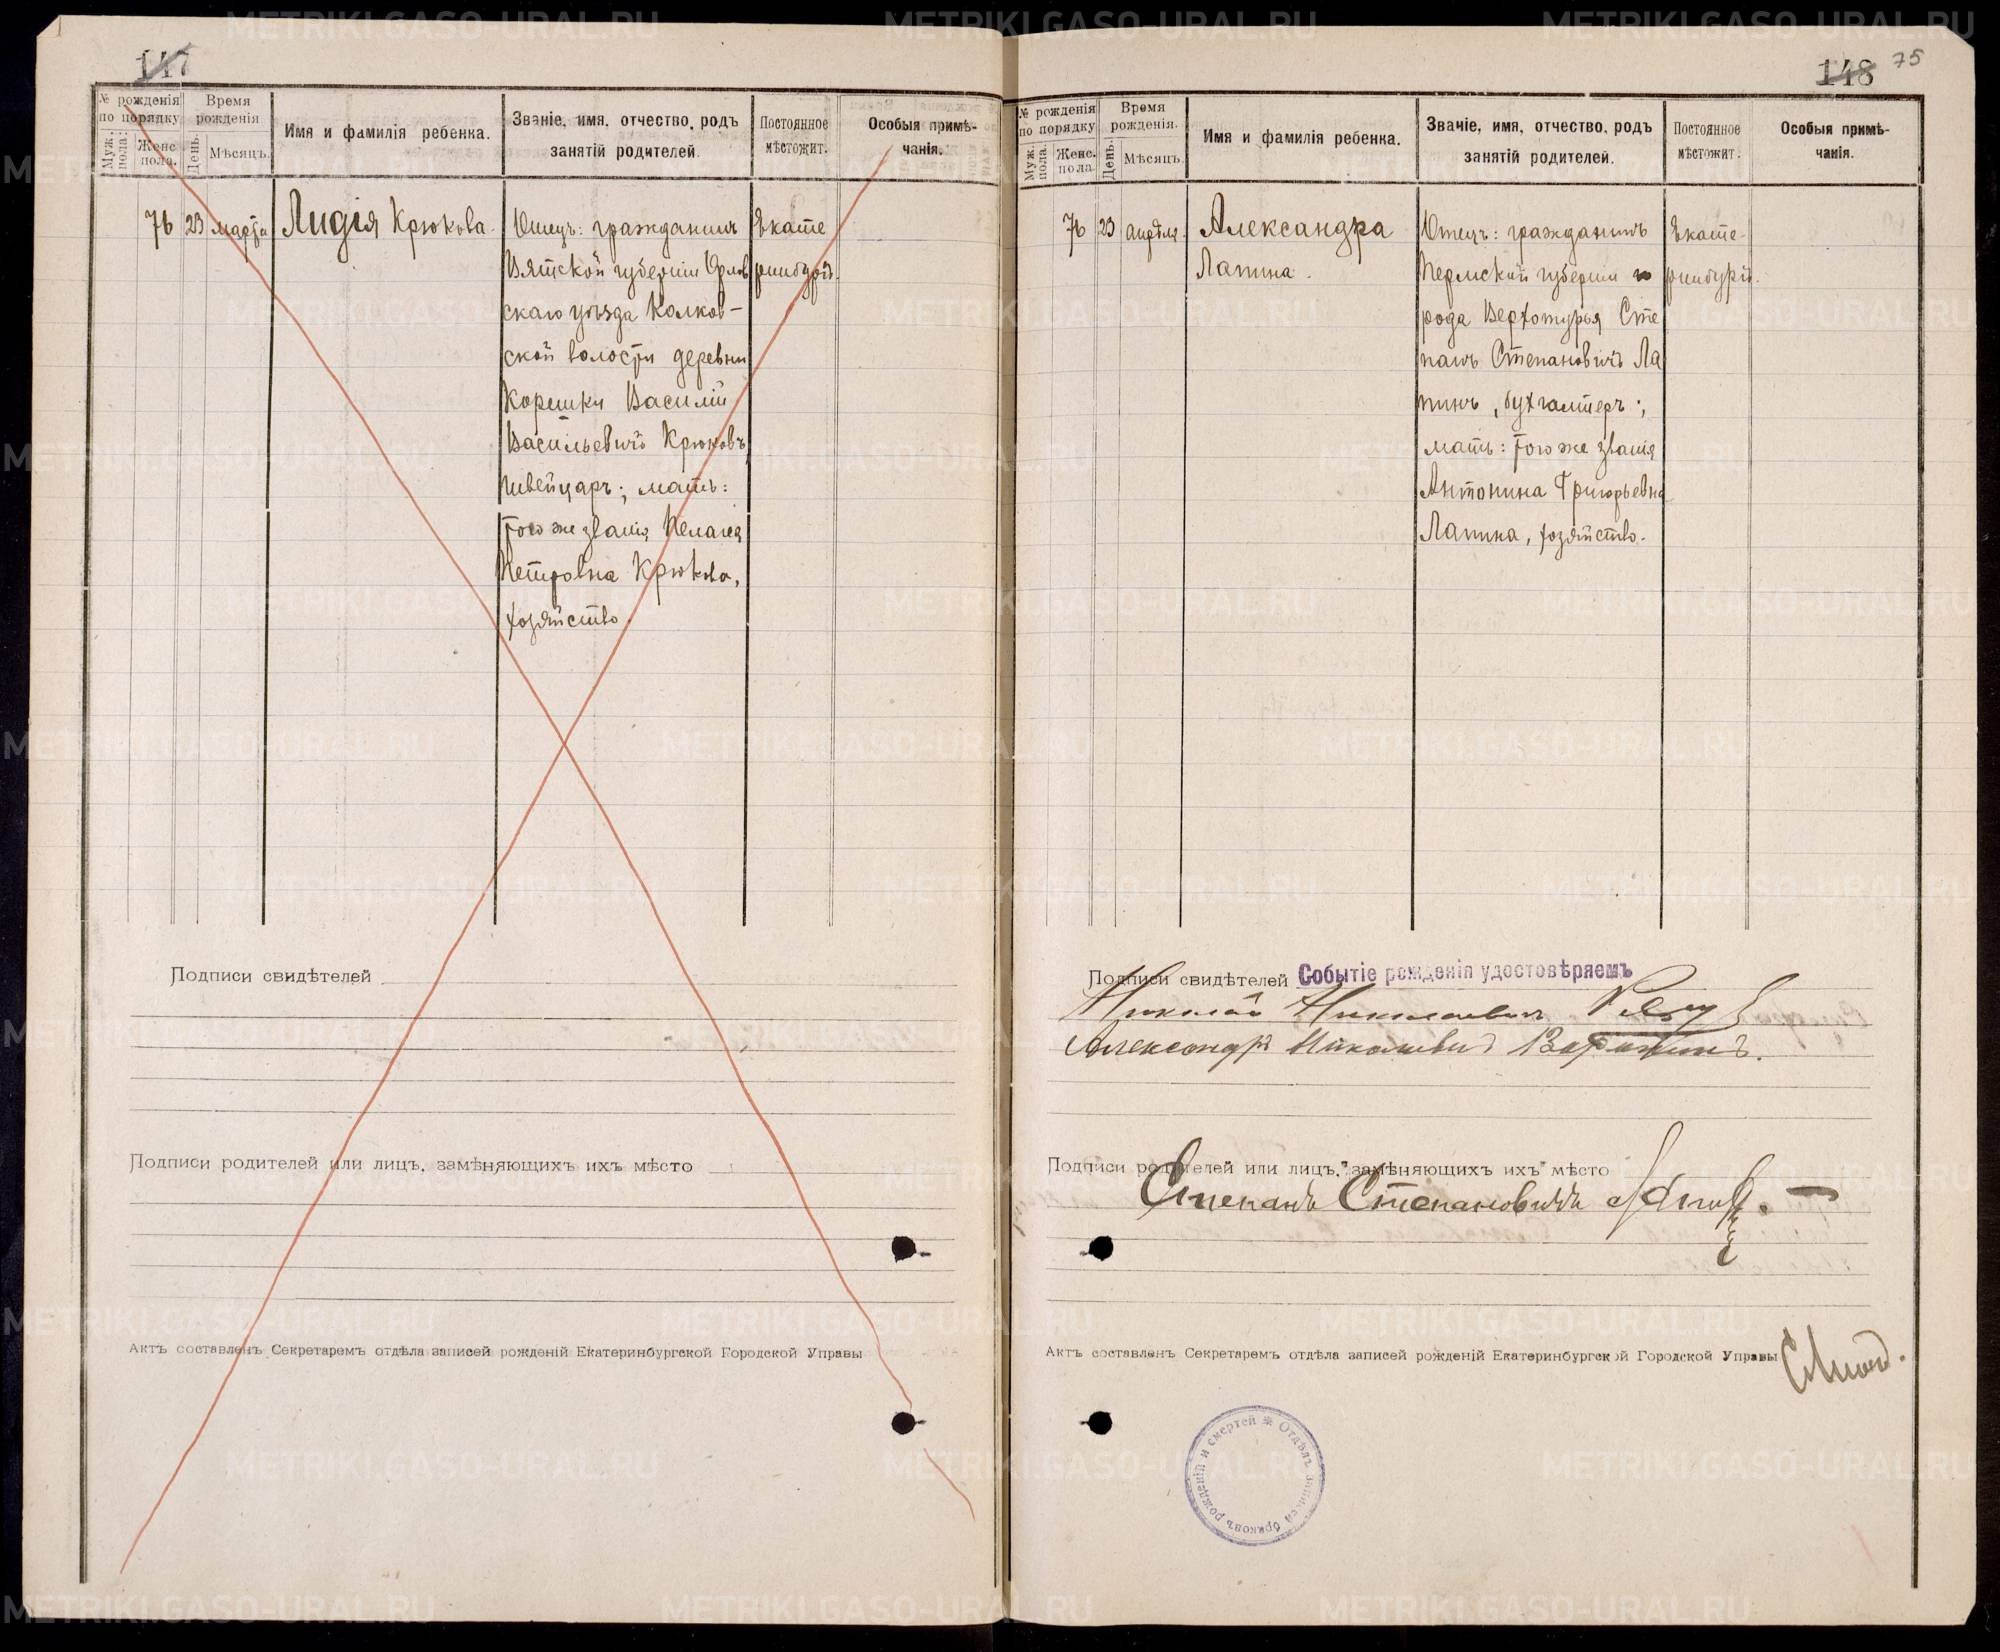 147
№ рожденія по порядку
Муж. пола.
Женс пола.
Время рожденія
День.
Мѣсяцъ.
Имя и фамилія ребенка.
Званіе, имя, отчество, родъ занятій родителей.
Постоянное мѣстожит.
Особыя примѣчанія.
76 23 марта Лидія Крюкова.
Отецъ: гражданинъ
Вятской губерніи Орлов
скаго уѣзда Колков-
ской волости деревни
Корешки Василій
Васильевичъ Крюковъ,
швейцаръ; мать:
того же званія Пелагея
Петровна Крюкова,
хозяйство.
Екате
ринбургъ.
Подписи свидѣтелей
Подписи родителей или лицъ, замѣняющихъ ихъ мѣсто
Актъ составленъ Секретаремъ отдѣла записей рожденій Екатеринбургской Городской Управы
148 75
№ рожденія по порядку
Муж. пола.
Женс. пола
Время рожденія.
День.
Мѣсяцъ.
Имя и фамилія ребенка.
Званіе, имя, отчество, родъ занятій родителей.
Постоянное мѣстожит.
Особыя примѣчанія.
76 23 апрѣля. Александра
Лапина.
Отецъ: гражданинъ
Пермской губерніи го
рода Верхотурья Сте
панъ Степановичъ Ла
пинъ, бухгалтеръ;
мать: того же званія
Антонина Григорьевна
Лапина, хозяйство.
Екате-
ринбургъ.
Подписи свидѣтелей Событіе рожденія удостовѣряемъ
Николай Николаевич
Александръ Николаевич
Подписи родителей или лицъ, замѣняющихъ ихъ мѣсто
Степанъ Степановичъ Лапинъ. —
Актъ составленъ Секретаремъ отдѣла записей рожденій Екатеринбургской Городской Управы
Отдѣлъ записей браковъ рожденій и смертей
METRIKI.GASO-URAL.RU